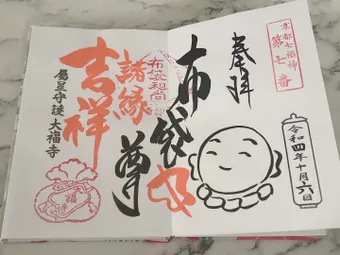 京都七福神
第七番
奉拝
令和四年十月六日
布袋尊
布袋和尚
諸縁
吉祥
厄星守護 大福寺
福寺